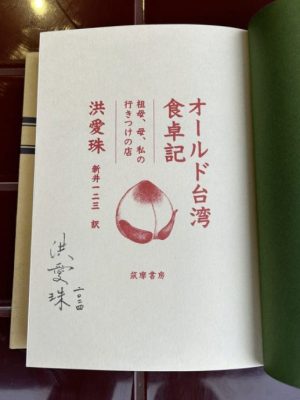 オールド台湾
食卓記
祖母、母、私の
行きつけの店
洪愛珠
新井一二三 訳
筑摩書房
洪愛珠
二〇二四